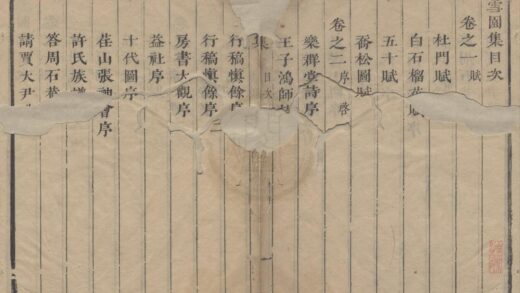 雪園集目次
卷之一 賦
杜門賦
白石榴花賦
喬松圖賦
五十賦
卷之二 序 啓
樂群堂詩序
王子鴻師
集 目次
行稿慎餘序
行稿慎餘序二
房書大觀序
益社序
十代圖序
荏山張 會序
許氏族
答周石
請賈大尹